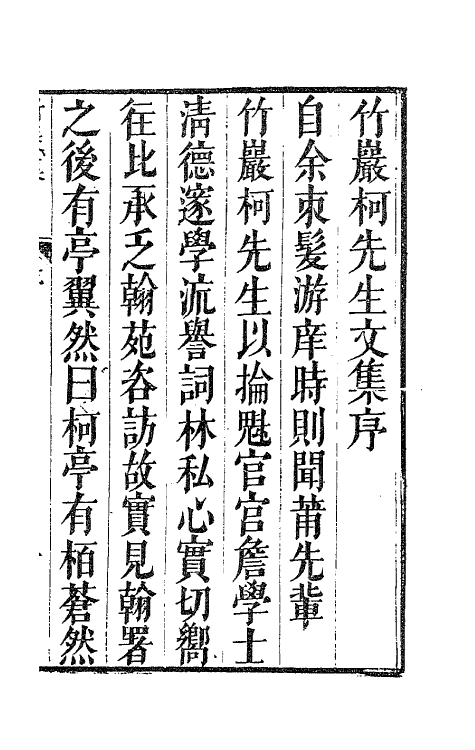 竹巖柯先生文集序
自余束髮游庠時則聞莆先輩
竹巖柯先生以掄魁官宮詹學士
清德邃學流譽詞林私心實切嚮
往比承乏翰苑咨訪故實見翰署
之後有亭翼然曰柯亭有栢蒼然